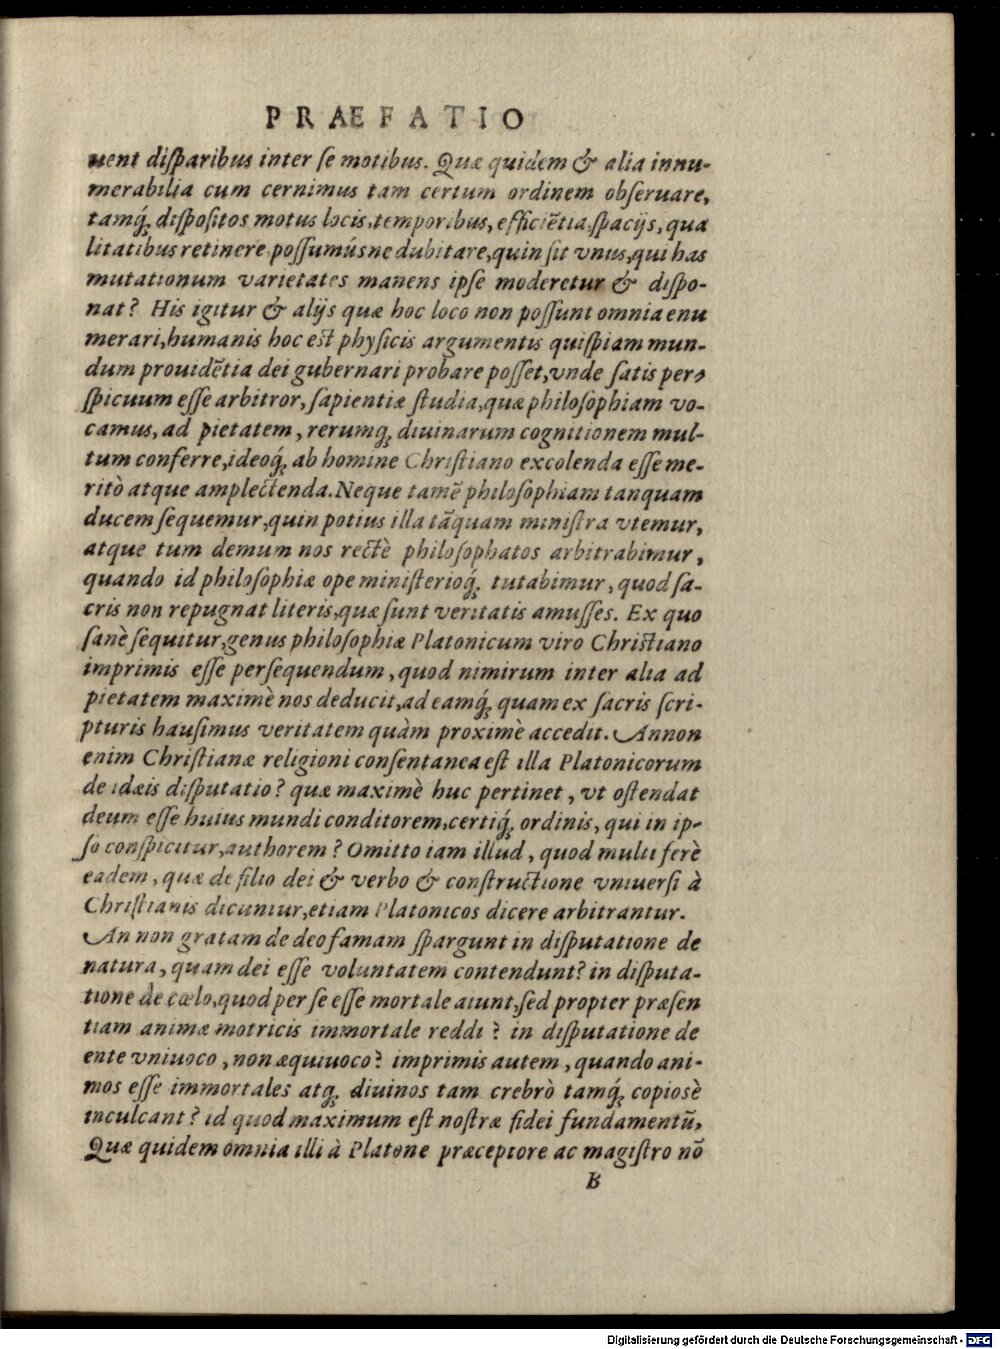 PRAEFATIO
uent disparibus inter se motibus. Quæ quidem & alia innu-
merabilia cum cernimus tam certum ordinem obseruare,
tamq́ꝫ dispositos motus locis, temporibus, efficiẽtia, spacijs, qua
litatibus retinere, possumúsne dubitare, quin sit vnus, qui has
mutationum varietates manens ipse moderetur & dispo-
nat? His igitur & alijs quæ hoc loco non possunt omnia enu
merari, humanis hoc est physicis argumentis quispiam mun-
dum prouidẽtia dei gubernari probare posset, vnde satis per-
spicuum esse arbitror, sapientiæ studia, quæ philosophiam vo-
camus, ad pietatem, rerumqꝫ diuinarum cognitionem mul-
tum conferre, ideoq́ꝫ ab homine Christiano excolenda esse me-
ritò atque amplectenda. Neque tamẽ philosophiam tanquam
ducem sequemur, quin potius illa tãquam ministra vtemur,
atque tum demum nos rectè philosophatos arbitrabimur,
quando id philosophiæ ope ministerioq́ꝫ tutabimur, quod sa-
cris non repugnat literis, quæ sunt veritatis amusses. Ex quo
sanè sequitur, genus philosophiæ Platonicum viro Christiano
imprimis esse persequendum, quod nimirum inter alia ad
pietatem maximè nos deducit, ad eamq́ꝫ quam ex sacris scri-
pturis hausimus veritatem quàm proximè accedit. Annon
enim Christianæ religioni consentanea est illa Platonicorum
de idæis disputatio? quæ maximè huc pertinet, vt ostendat
deum esse huius mundi conditorem, certiq́ꝫ ordinis, qui in ip-
so conspicitur, authorem? Omitto iam illud, quod multi ferè
eadem, quæ de filio dei & verbo & constructione vniuersi à
Christianis dicuntur, etiam Platonicos dicere arbitrantur.
An non gratam de deo famam spargunt in disputatione de
natura, quam dei esse voluntatem contendunt? in disputa-
tione de cœlo, quod per se esse mortale aiunt, sed propter præsen
tiam animæ motricis immortale reddi? in disputatione de
ente vniuoco, non æquiuoco? imprimis autem, quando ani-
mos esse immortales atqꝫ diuinos tam crebrò tamq́ꝫ copiosè
inculcant? id quod maximum est nostræ fidei fundamentũ,
Quæ quidem omnia illi à Platone præceptore ac magistro nõ
B
Digitalisierung gefördert durch die Deutsche Forschungsgemeinschaft - DFG